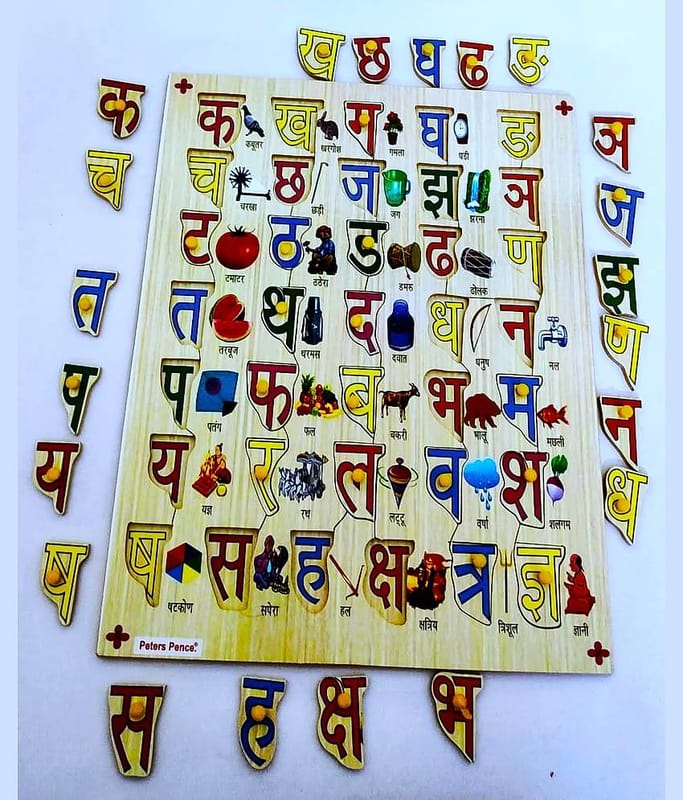 ख छ घ ढ ङ
क क ख ग घ ङ ञ
कबूतर खरगोश गमला घड़ी
च च छ ज झ ञ ज
चरखा छड़ी जग झरना
ट ठ ड ढ ण झ
टमाटर ठठेरा डमरु ढोलक
त त थ द ध न ण
तरबूज थरमस दवात धनुष नल
प प फ ब भ म न
पतंग फल बकरी भालू मछली
य य र ल व श ध
यज्ञ रथ लट्टू वर्षा शलगम
ष ष स ह क्ष त्र ज्ञ
षटकोण सपेरा हल क्षत्रिय त्रिशूल ज्ञानी
Peters Pence®
स ह क्ष भ